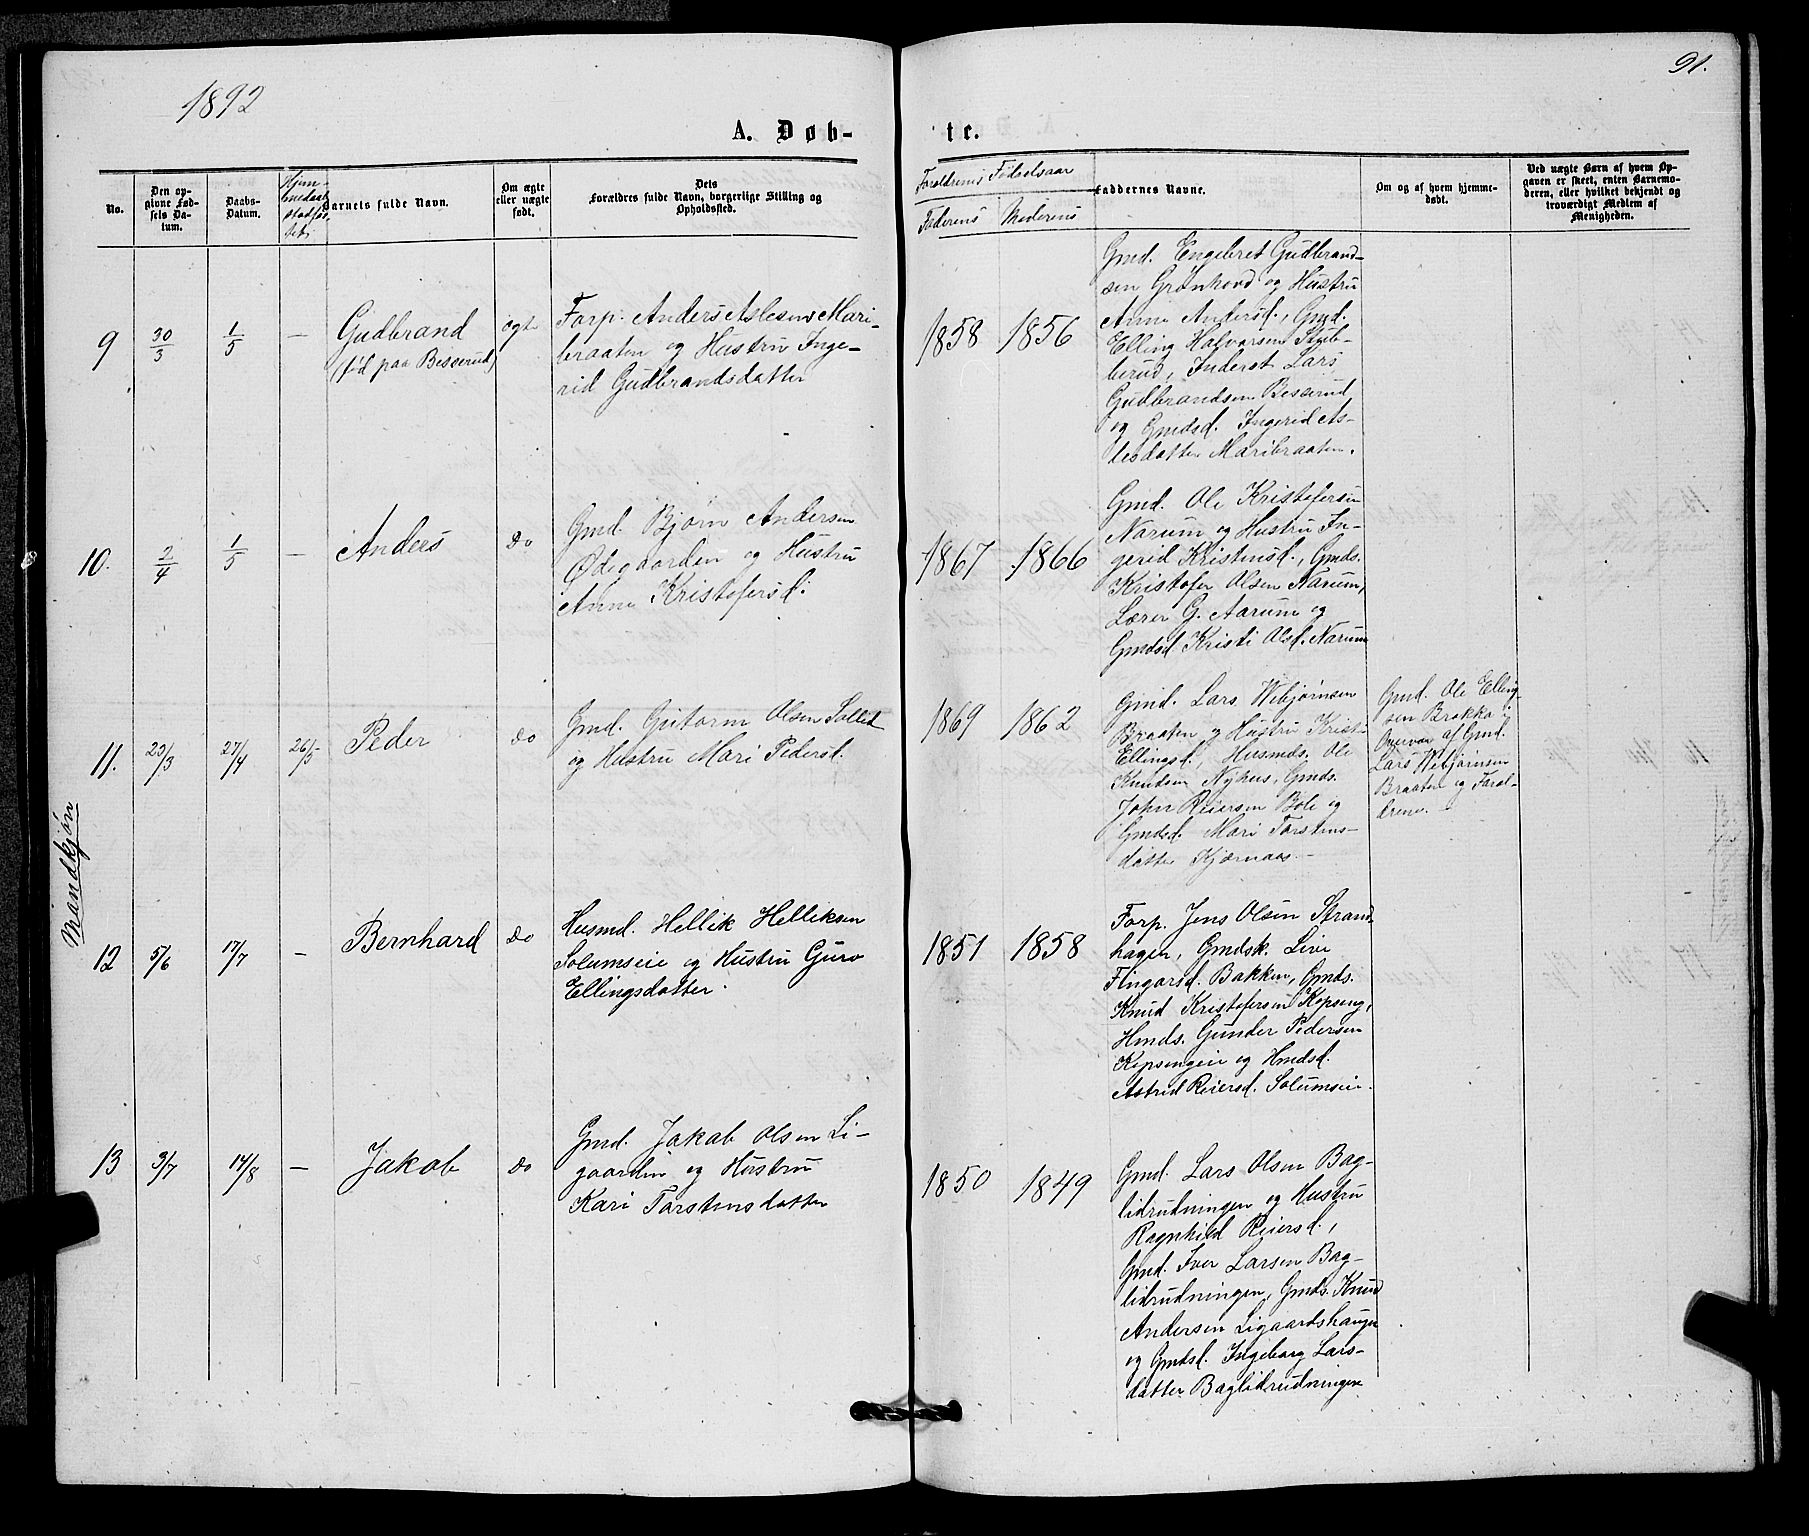 1892
91.
A. Døb-
te.
No.
Den op-
givne Fød-
sels Da-
tum.
Daabs-
Datum.
Barnets fulde Navn.
Om ægte
eller uægte
født.
Dets
Forældres fulde Navn, borgerlige Stilling og
Opholdssted.
Forældrens Fødselsaar
Faderens Moderens
Faddernes Navne.
Om og af hvem hjemme-
døbt.
Ved uægte Børn af hvem Op-
gaven er skeet, enten Barnemo-
deren, eller hvilket bekjendt og
troværdigt Medlem af
Menigheden.
Mandkjøn
9 30/3 1/5 —
Gudbrand
(fød paa Besserud)
ægte
Forp. Anders Aslesen Mari-
braaten og Hustru Inge-
rid Gudbrandsdatter
1858 1856
Gmd. Engebret Gudbrand-
sen Grønhovd og Hustru
Anne Andersd., Gmd.
Elling Halvorsen
Inderst Lars
Gudbrandsen Besserud
og Gmdsd. Ingerid As-
lesdatter Maribraaten.
10. 2/4 1/5 —
Anders
do
Gmd. Bjørn Andersen
Ødegaarden og Hustru
Anne Kristofersd.
1867 1866
Gmd. Ole Kristofersen
Narum og Hustru In-
gerid Kristensd., Gmds.
Kristofer Olsen Narum,
Lærer G. Aarum og
Gmdsd Kristi Olsd. Narum
11. 23/3 27/4 26/5
Peder
do
Gmd. Gutorm Olsen Sollid
og Hustru Mari Pedersd.
1869 1862
Gmd. Lars Webjørnsen
Braaten og Hustru Kristi
Ellingsd., Husmds. Ole
Knudsen Nyhus, Gmds.
John Reiersen Bøle og
Gmdsd. Mari Torstens-
datter Kjærnaas. —
Gmd. Ole Elling-
sen Brakka i
Overvær af Gmd.
Lars Webjørnsen
Braaten og Foræl-
drene. —
12 5/6 17/7 —
Bernhard
do
Husmd. Hellik Helliksen
Solumseie og Hustru Guro
Ellingsdatter.
1851 1858
Forp. Jens Olsen Strand-
hagen, Gmdsk. Live
Fingarsd. Bakken, Gmds.
Knud Kristofersen Kopseng,
Hmds. Gunder Pedersen
Kopsengeie og Hmdsd.
Astrid Reiersd. Solumseie.
13 3/7 14/8 —
Jakob
do
Gmd. Jakob Olsen Li-
gaarden og Hustru
Kari Torstensdatter
1850 1849
Gmd. Lars Olsen Bag-
lidrudningen og Hustru
Ragnhild Reiersd.,
Gmd. Iver Larsen Bag-
lidrudningen, Gmds. Knud
Andersen Ligaardshaugen
og Gmdsd. Ingeborg Lars-
datter Baglidrudningen